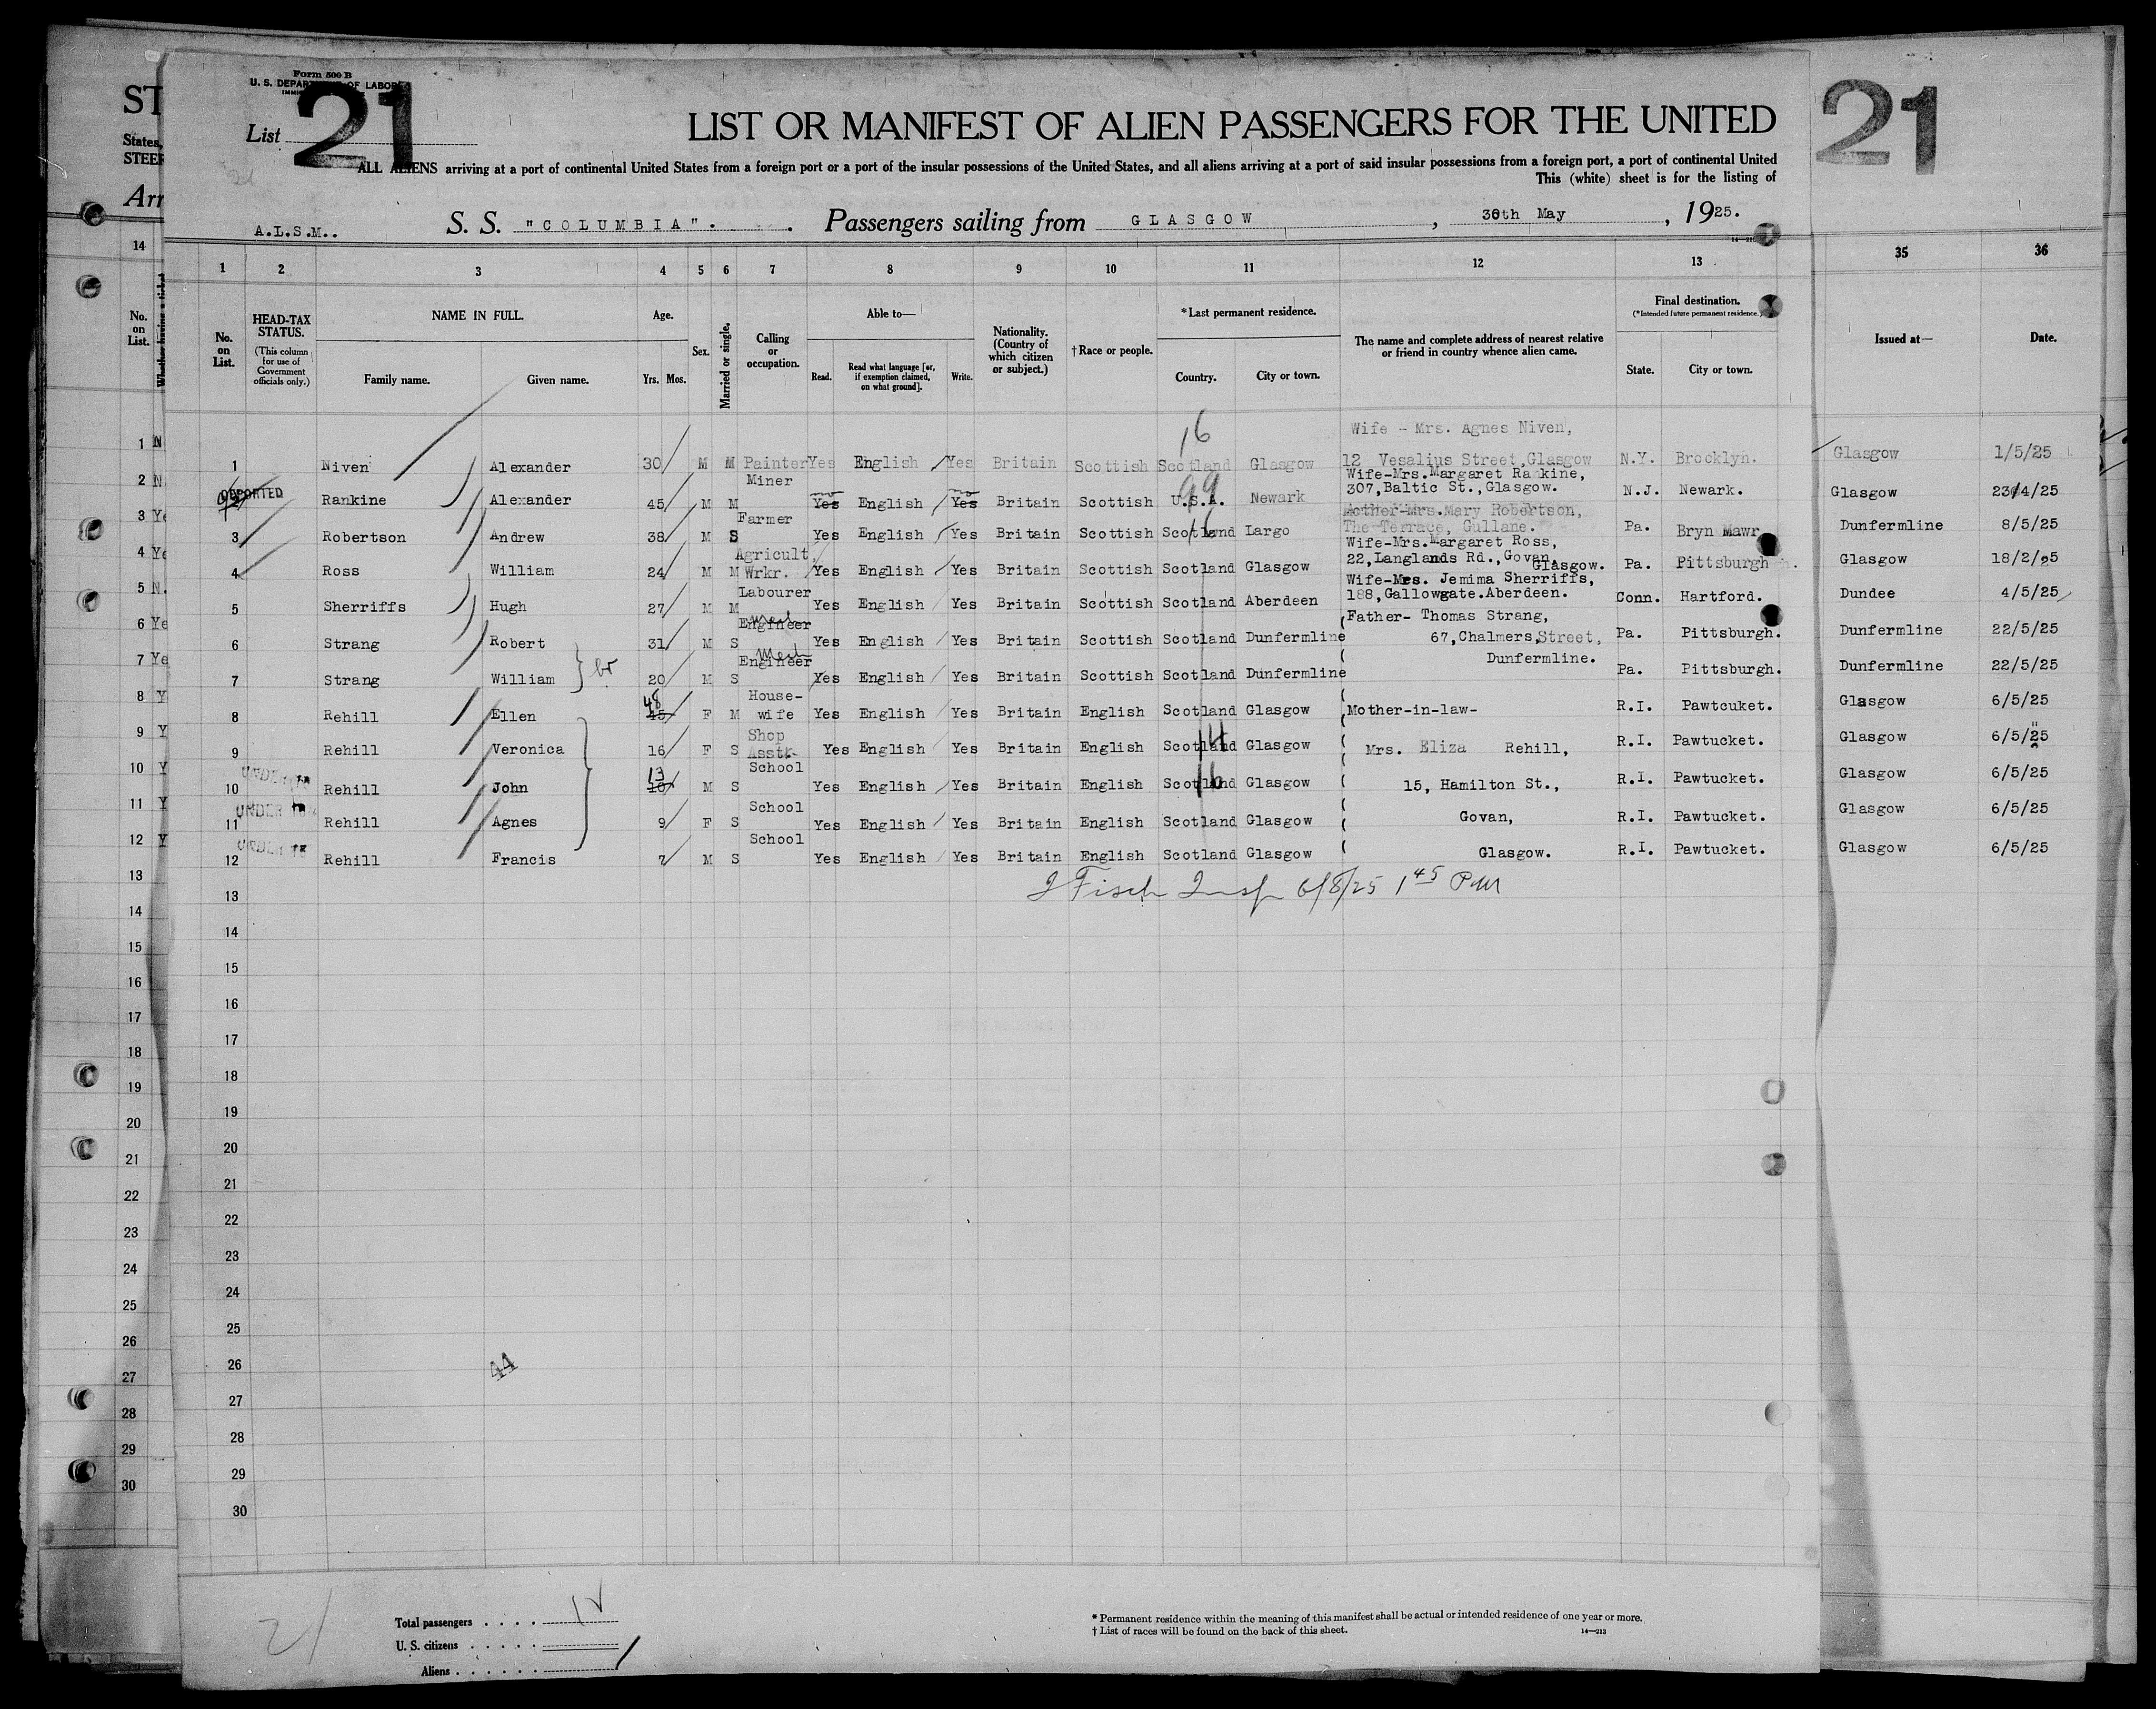 Form 500 B
U. S. DEPARTMENT OF LABOR
21
List
LIST OR MANIFEST OF ALIEN PASSENGERS FOR THE UNITED
21
ST
States,
STEER
Arr
ALL ALIENS arriving at a port of continental United States from a foreign port or a port of the insular possessions of the United States, and all aliens arriving at a port of said insular possessions from a foreign port, a port of continental United
This (white) sheet is for the listing of
A.L.S.M.. S. S. "COLUMBIA". Passengers sailing from GLASGOW, 30th May, 1925.
14 1 2 3 4 5 6 7 8 9 10 11 12 13 35 36
No. on List.
No. on List.
HEAD-TAX STATUS.
(This column for use of Government officials only.)
NAME IN FULL.
Family name. Given name.
Age.
Yrs. Mos.
Sex.
Married or single.
Calling or occupation.
Able to—
Read. Read what language [or, if exemption claimed, on what ground]. Write.
Nationality. (Country of which citizen or subject.)
†Race or people.
*Last permanent residence.
Country. City or town.
The name and complete address of nearest relative or friend in country whence alien came.
Final destination.
(*Intended future permanent residence.)
State. City or town.
Issued at— Date.
16
Wife - Mrs. Agnes Niven,
1 Niven Alexander 30 M M Painter Yes English Yes Britain Scottish Scotland Glasgow 12 Vesalius Street, Glasgow N.Y. Brooklyn. Glasgow 1/5/25
Miner 99 Wife-Mrs.Margaret Rankine,
DEPORTED Rankine Alexander 45 M M Yes no English Yes no Britain Scottish U.S.A. Newark 307,Baltic St.,Glasgow. N.J. Newark. Glasgow 23/4/25
Farmer 16 Mother-Mrs.Mary Robertson,
3 Robertson Andrew 38 M S Yes English Yes Britain Scottish Scotland Largo The Terrace, Gullane. Pa. Bryn Mawr Dunfermline 8/5/25
Agricult. Wife-Mrs.Margaret Ross,
4 Ross William 24 M M Wrkr. Yes English Yes Britain Scottish Scotland Glasgow 22,Langlands Rd.,Govan, Glasgow. Pa. Pittsburgh Glasgow 18/2/25
Labourer Wife-Mrs. Jemima Sherriffs,
5 Sherriffs Hugh 27 M M Yes English Yes Britain Scottish Scotland Aberdeen 188,Gallowgate.Aberdeen. Conn. Hartford. Dundee 4/5/25
Engineer Father- Thomas Strang,
6 Strang Robert 31 M S Yes English Yes Britain Scottish Scotland Dunfermline 67,Chalmers,Street, Pa. Pittsburgh. Dunfermline 22/5/25
br
Engineer Dunfermline.
7 Strang William 20 M S Yes English Yes Britain Scottish Scotland Dunfermline Pa. Pittsburgh. Dunfermline 22/5/25
48 House-
8 Rehill Ellen 45 F M wife Yes English Yes Britain English Scotland Glasgow Mother-in-law- R.I. Pawtcuket. Glasgow 6/5/25
Shop 14
9 Rehill Veronica 16 F S Asst. Yes English Yes Britain English Scotland Glasgow Mrs. Eliza Rehill, R.I. Pawtucket. Glasgow 6/5/25
UNDER 13 School 16
10 Rehill John 10 M S Yes English Yes Britain English Scotland Glasgow 15, Hamilton St., R.I. Pawtucket. Glasgow 6/5/25
UNDER School
11 Rehill Agnes 9 F S Yes English Yes Britain English Scotland Glasgow Govan, R.I. Pawtucket. Glasgow 6/5/25
UNDER School
12 Rehill Francis 7 M S Yes English Yes Britain English Scotland Glasgow Glasgow. R.I. Pawtucket. Glasgow 6/5/25
13 J Fisch Insp 6/8/25 1 45 PM
14
15
16
17
18
19
20
21
22
23
24
25
26
44
27
28
29
30
21
Total passengers . . . . 12
U. S. citizens . . . . .
Aliens . . . . . .
* Permanent residence within the meaning of this manifest shall be actual or intended residence of one year or more.
† List of races will be found on the back of this sheet. 14—213